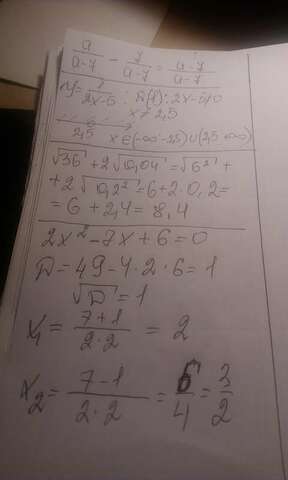 a/(a-7) - 7/(a-7) = (a-7)/(a-7)
2x-5 ; D(f): 2x-5≠0
x≠2,5
2,5 x∈(-∞-2,5)∪(2,5 ∞)
√36 + 2√0,04 = √6² +
+ 2√0,2² = 6 + 2·0,2 =
= 6 + 2,4 = 8,4
2x² - 7x + 6 = 0
D = 49 - 4·2·6 = 1
√D = 1
x₁ = (7+1)/(2·2) = 2
x₂ = (7-1)/(2·2) = 6/4 = 3/2